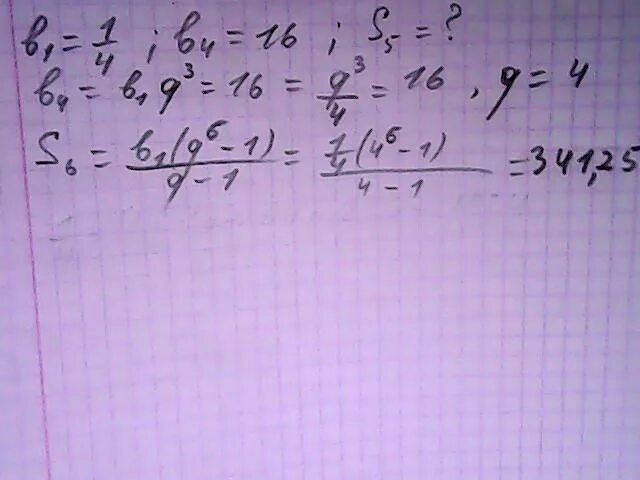 b₁ = 1/4 ; b₄ = 16 ; S₅ = ?
b₄ = b₁ q³ = 16 = q³/4 = 16 , q = 4
S₆ = b₁(q⁶ - 1)/(q - 1) = 1/4(4⁶ - 1)/(4 - 1) = 341,25